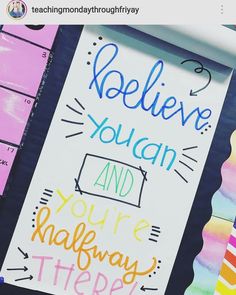 teachingmondaythroughfriyay
believe
you can
AND
you're
halfway
THERE!